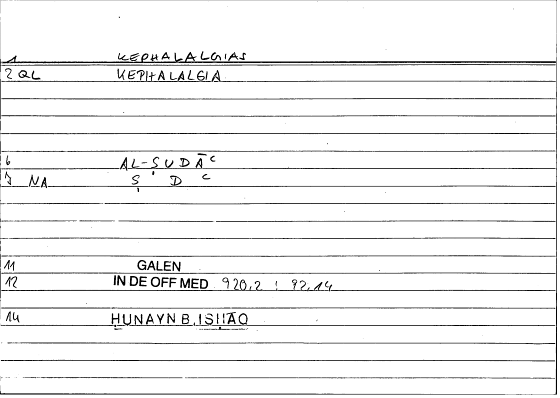 1 KEPHALALGIAS
2 QL KEPHALALGIA
6 AL-ṢUDĀᶜ
7 NA Ṣ D ᶜ
11 GALEN
12 IN DE OFF MED 920,2 : 92,14
14 ḤUNAYN B. ISḤĀQ